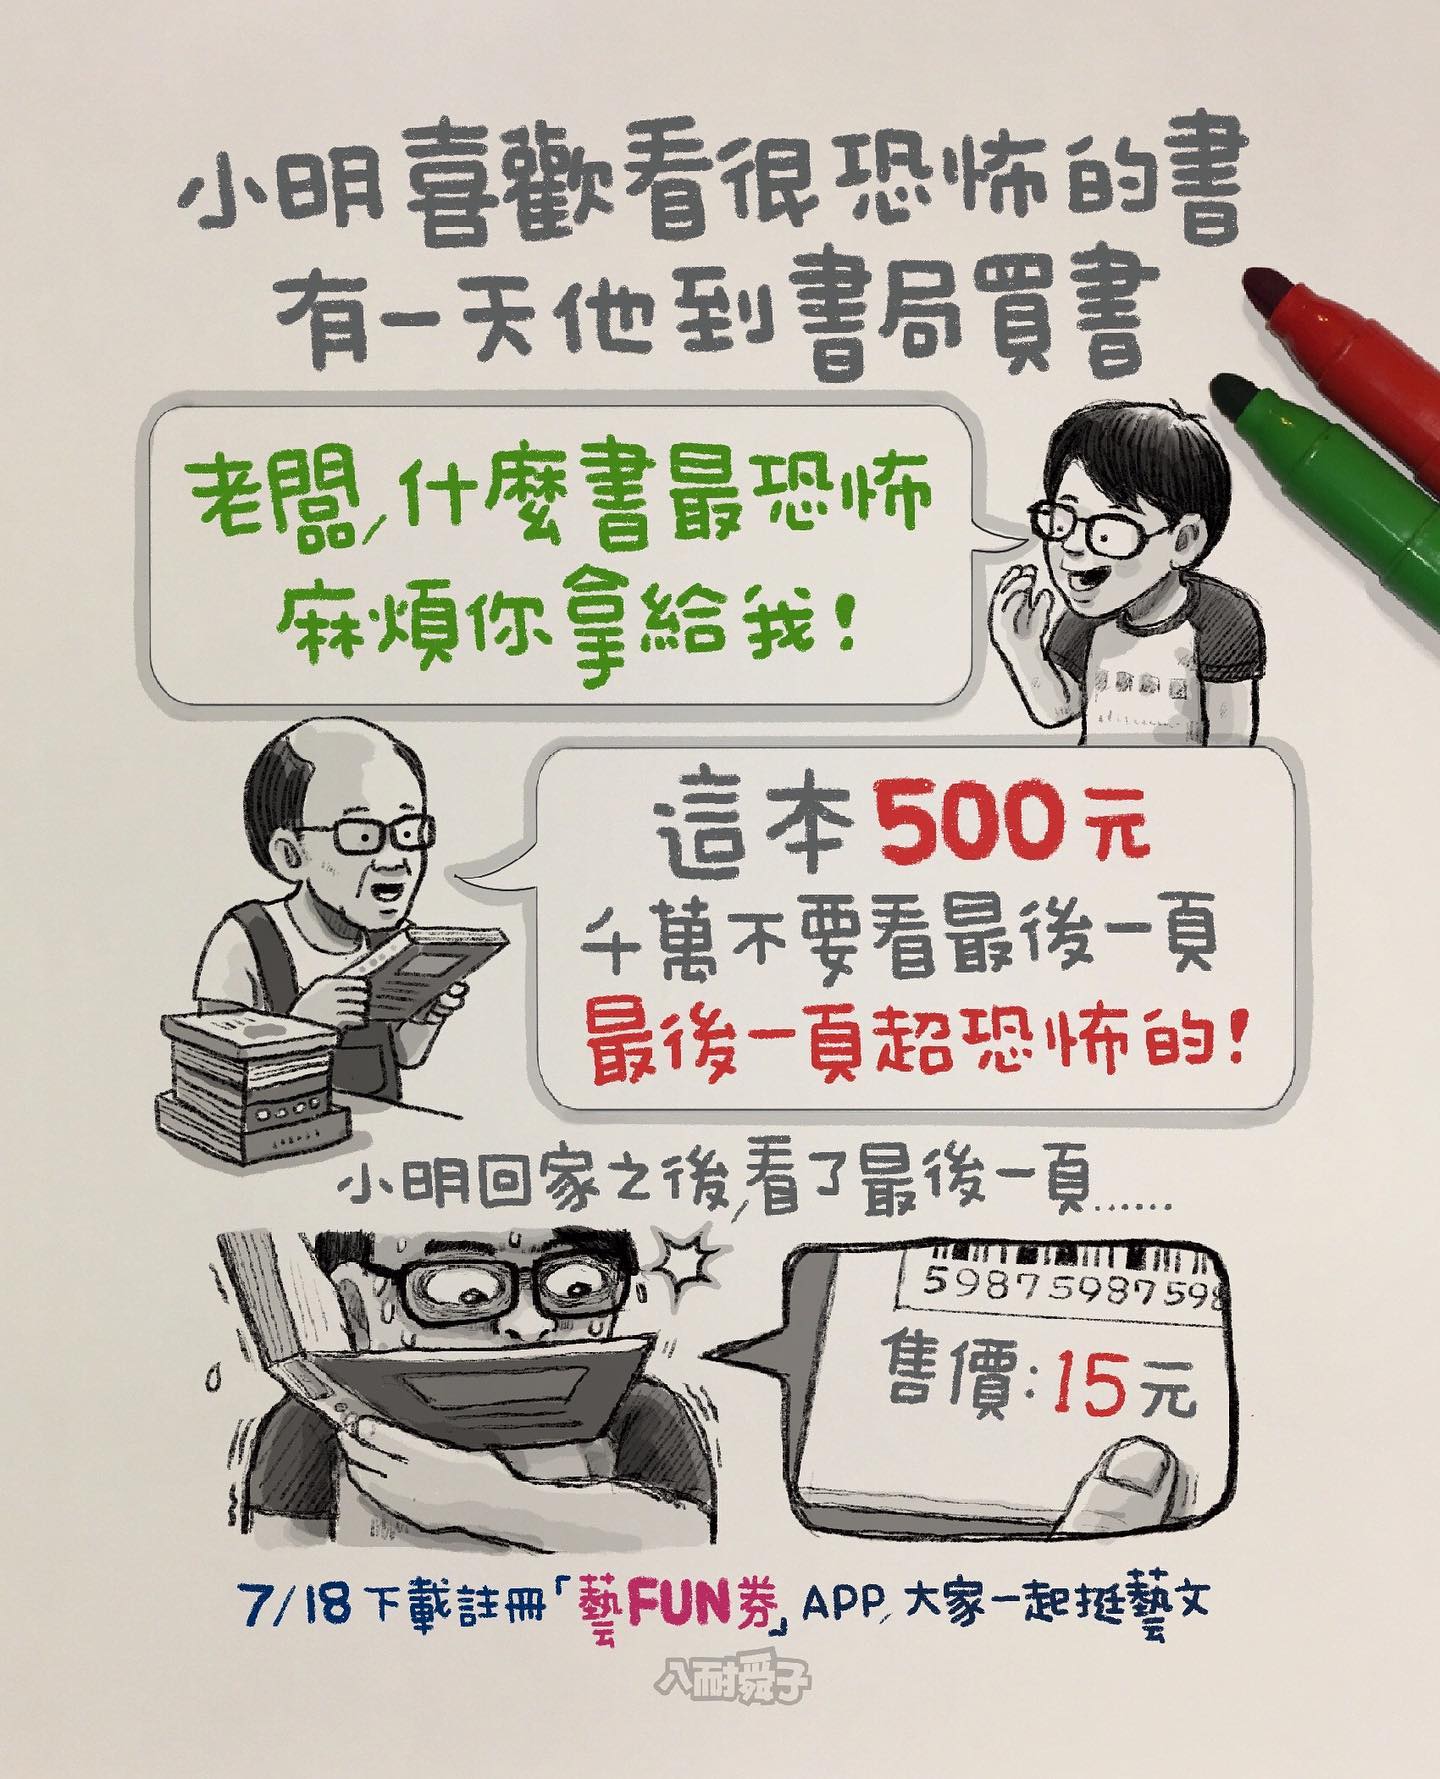 小明喜歡看很恐怖的書
有一天他到書局買書
老闆,什麼書最恐怖
麻煩你拿給我!
這本500元
千萬不要看最後一頁
最後一頁超恐怖的!
小明回家之後,看了最後一頁......
59875987598
售價:15元
7/18下載註冊「藝FUN券」APP,大家一起挺藝文
八耐舜子